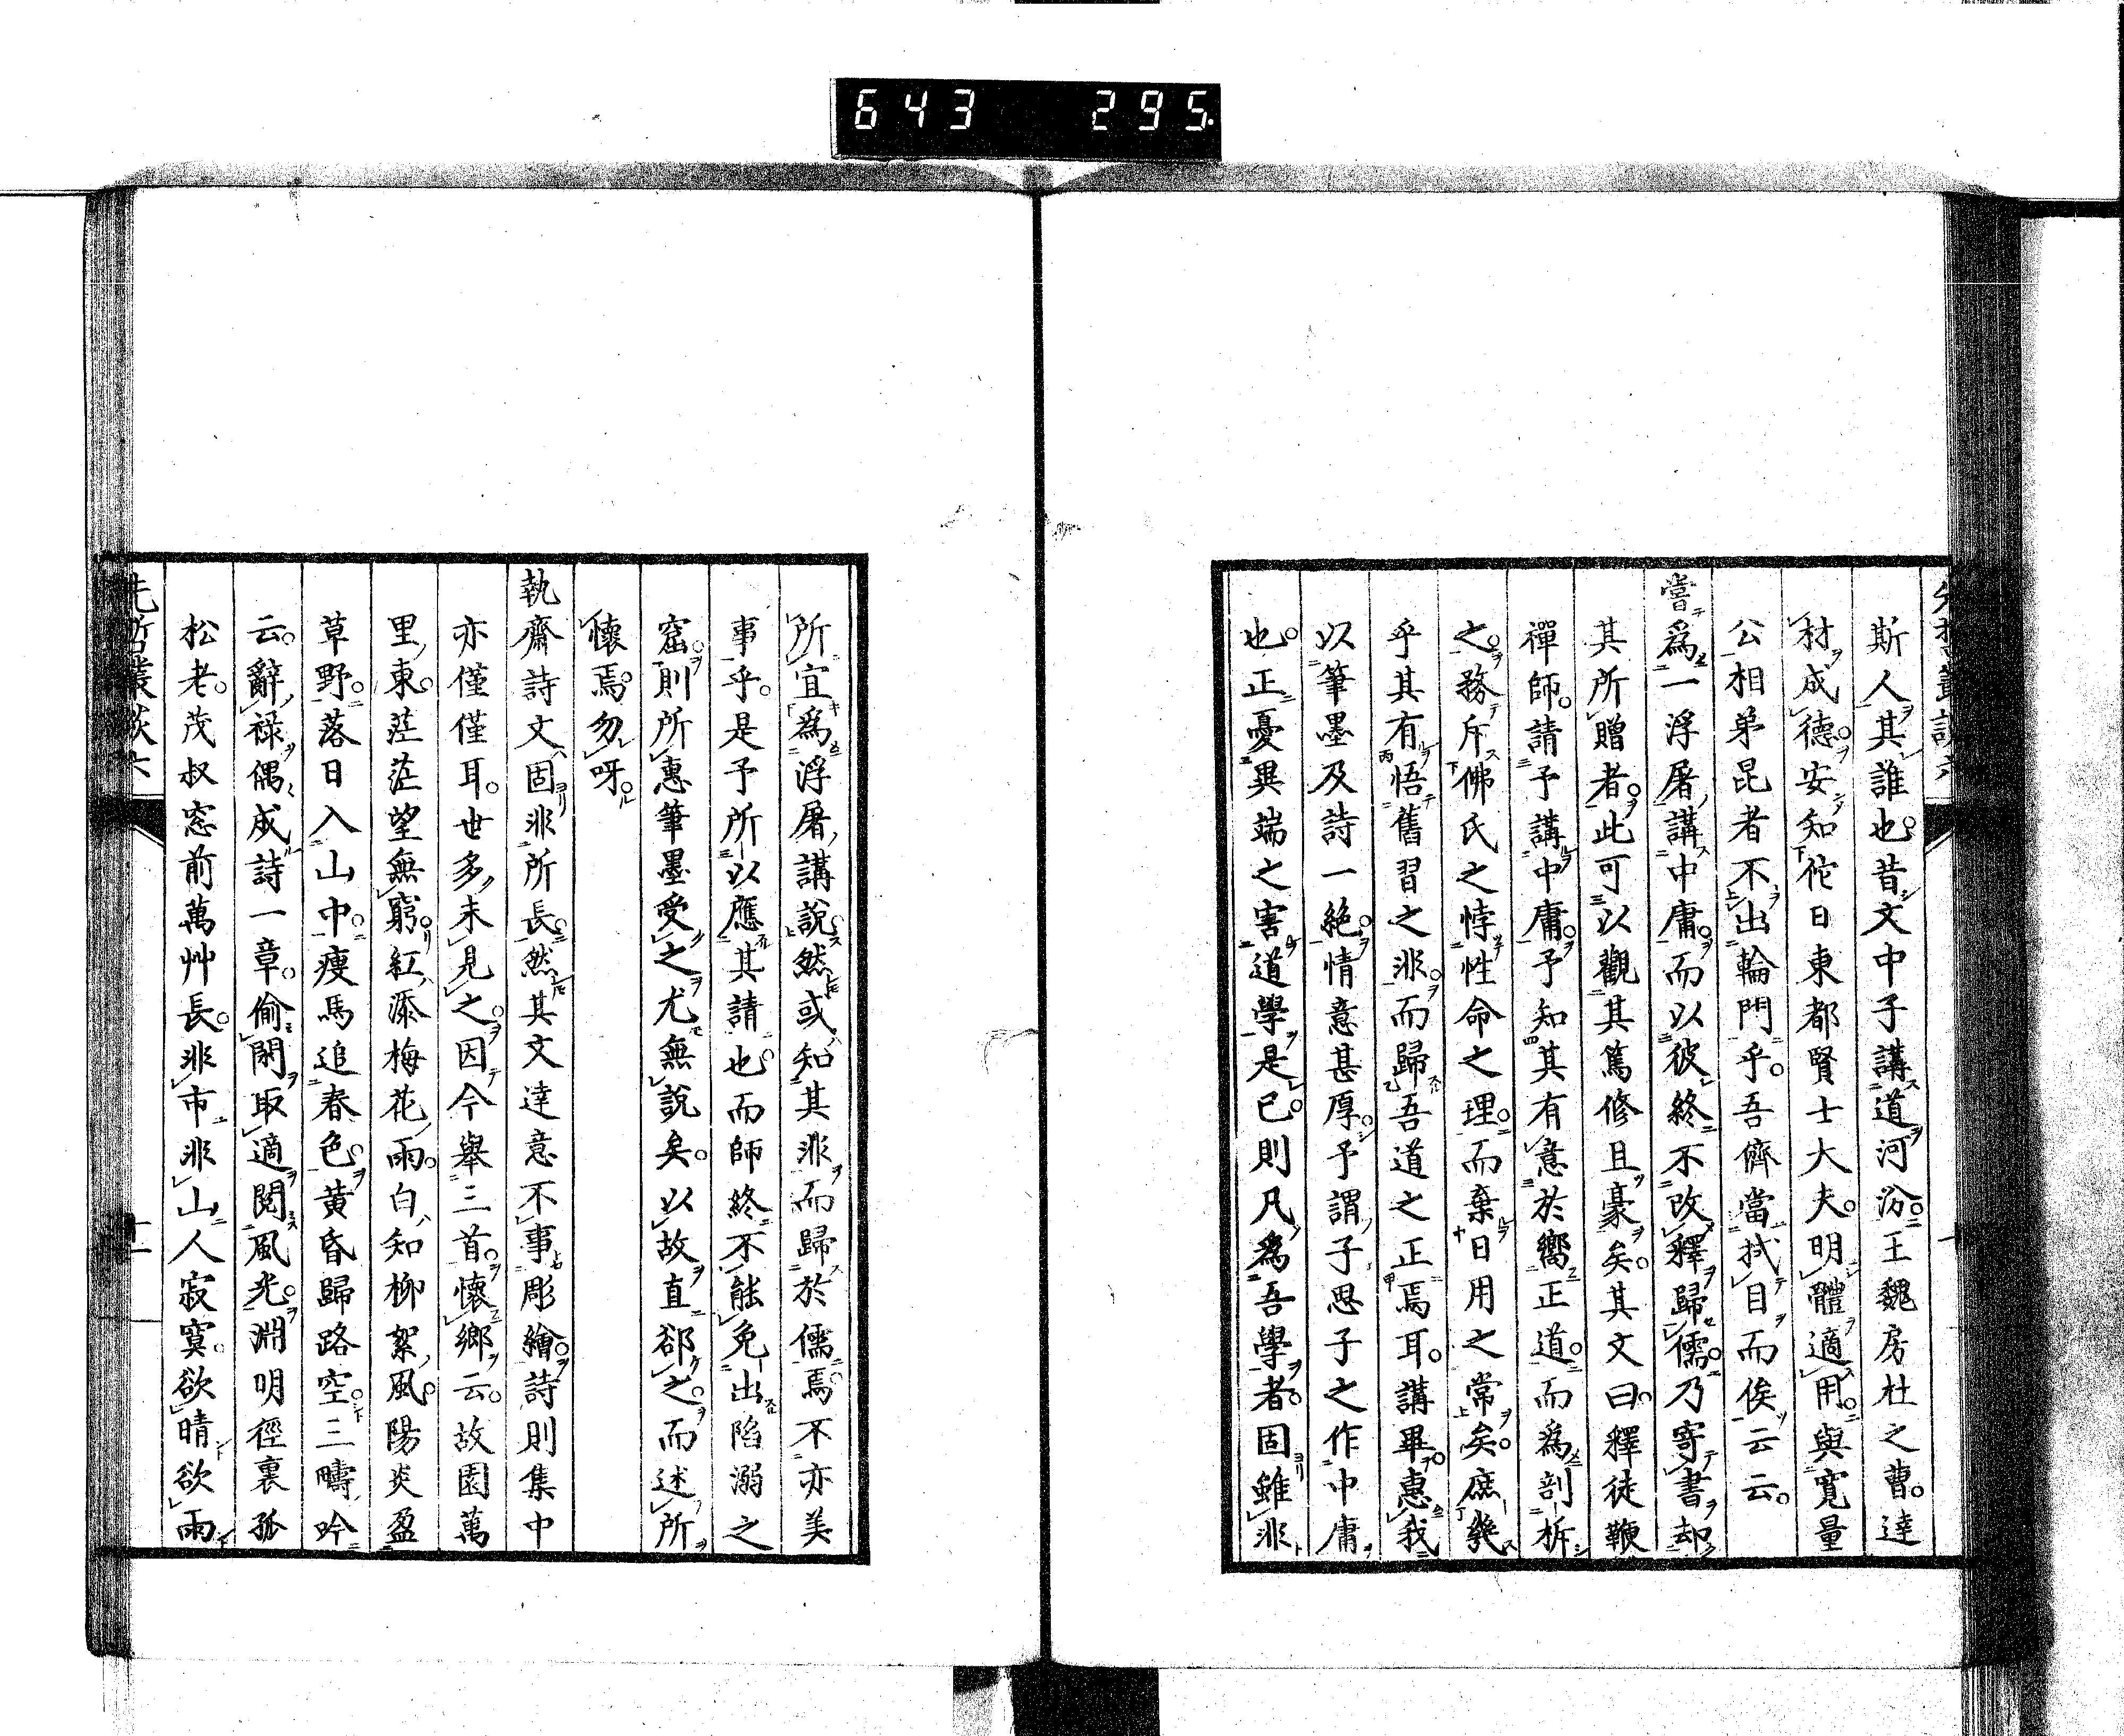 643 295
斯人其誰也昔文中子講道河汾王魏房杜之曹達
材成德安知佗日東都賢士大夫明體適用與寬量
公相弟昆者不出輪門乎吾儕當拭目而俟云云
嘗爲一浮屠講中庸而以彼終不改釋歸儒乃寄書却
其所贈者此可以觀其篤修且豪矣其文曰釋徒鞭
禪師請予講中庸予知其有意於嚮正道而爲剖析
之務斥佛氏之悖性命之理而棄日用之常矣庶幾
乎其有悟舊習之非而歸吾道之正焉耳講畢惠我
以筆墨及詩一絕情意甚厚予謂子思子之作中庸
也正憂異端之害道學是已則凡爲吾學者固雖非
所宜爲浮屠講說然或知其非而歸於儒焉不亦美
事乎是予所以應其請也而師終不能免出陷溺之
窟則所惠筆墨受之尤無說矣以故直郤之而述所
懷焉勿呀
執齋詩文固非所長然其文達意不事彫繪詩則集中
亦僅僅耳世多未見之因今舉三首懷鄉云故園萬
里東茫茫望無窮紅添梅花雨白知柳絮風陽炎盈
草野落日入山中瘦馬追春色黃昏歸路空三疇吟
云辭祿偶成詩一章偷閑取適閱風光淵明徑裏孤
松老茂叔窓前萬艸長非市非山人寂寞欲晴欲雨
先哲叢談六 十一